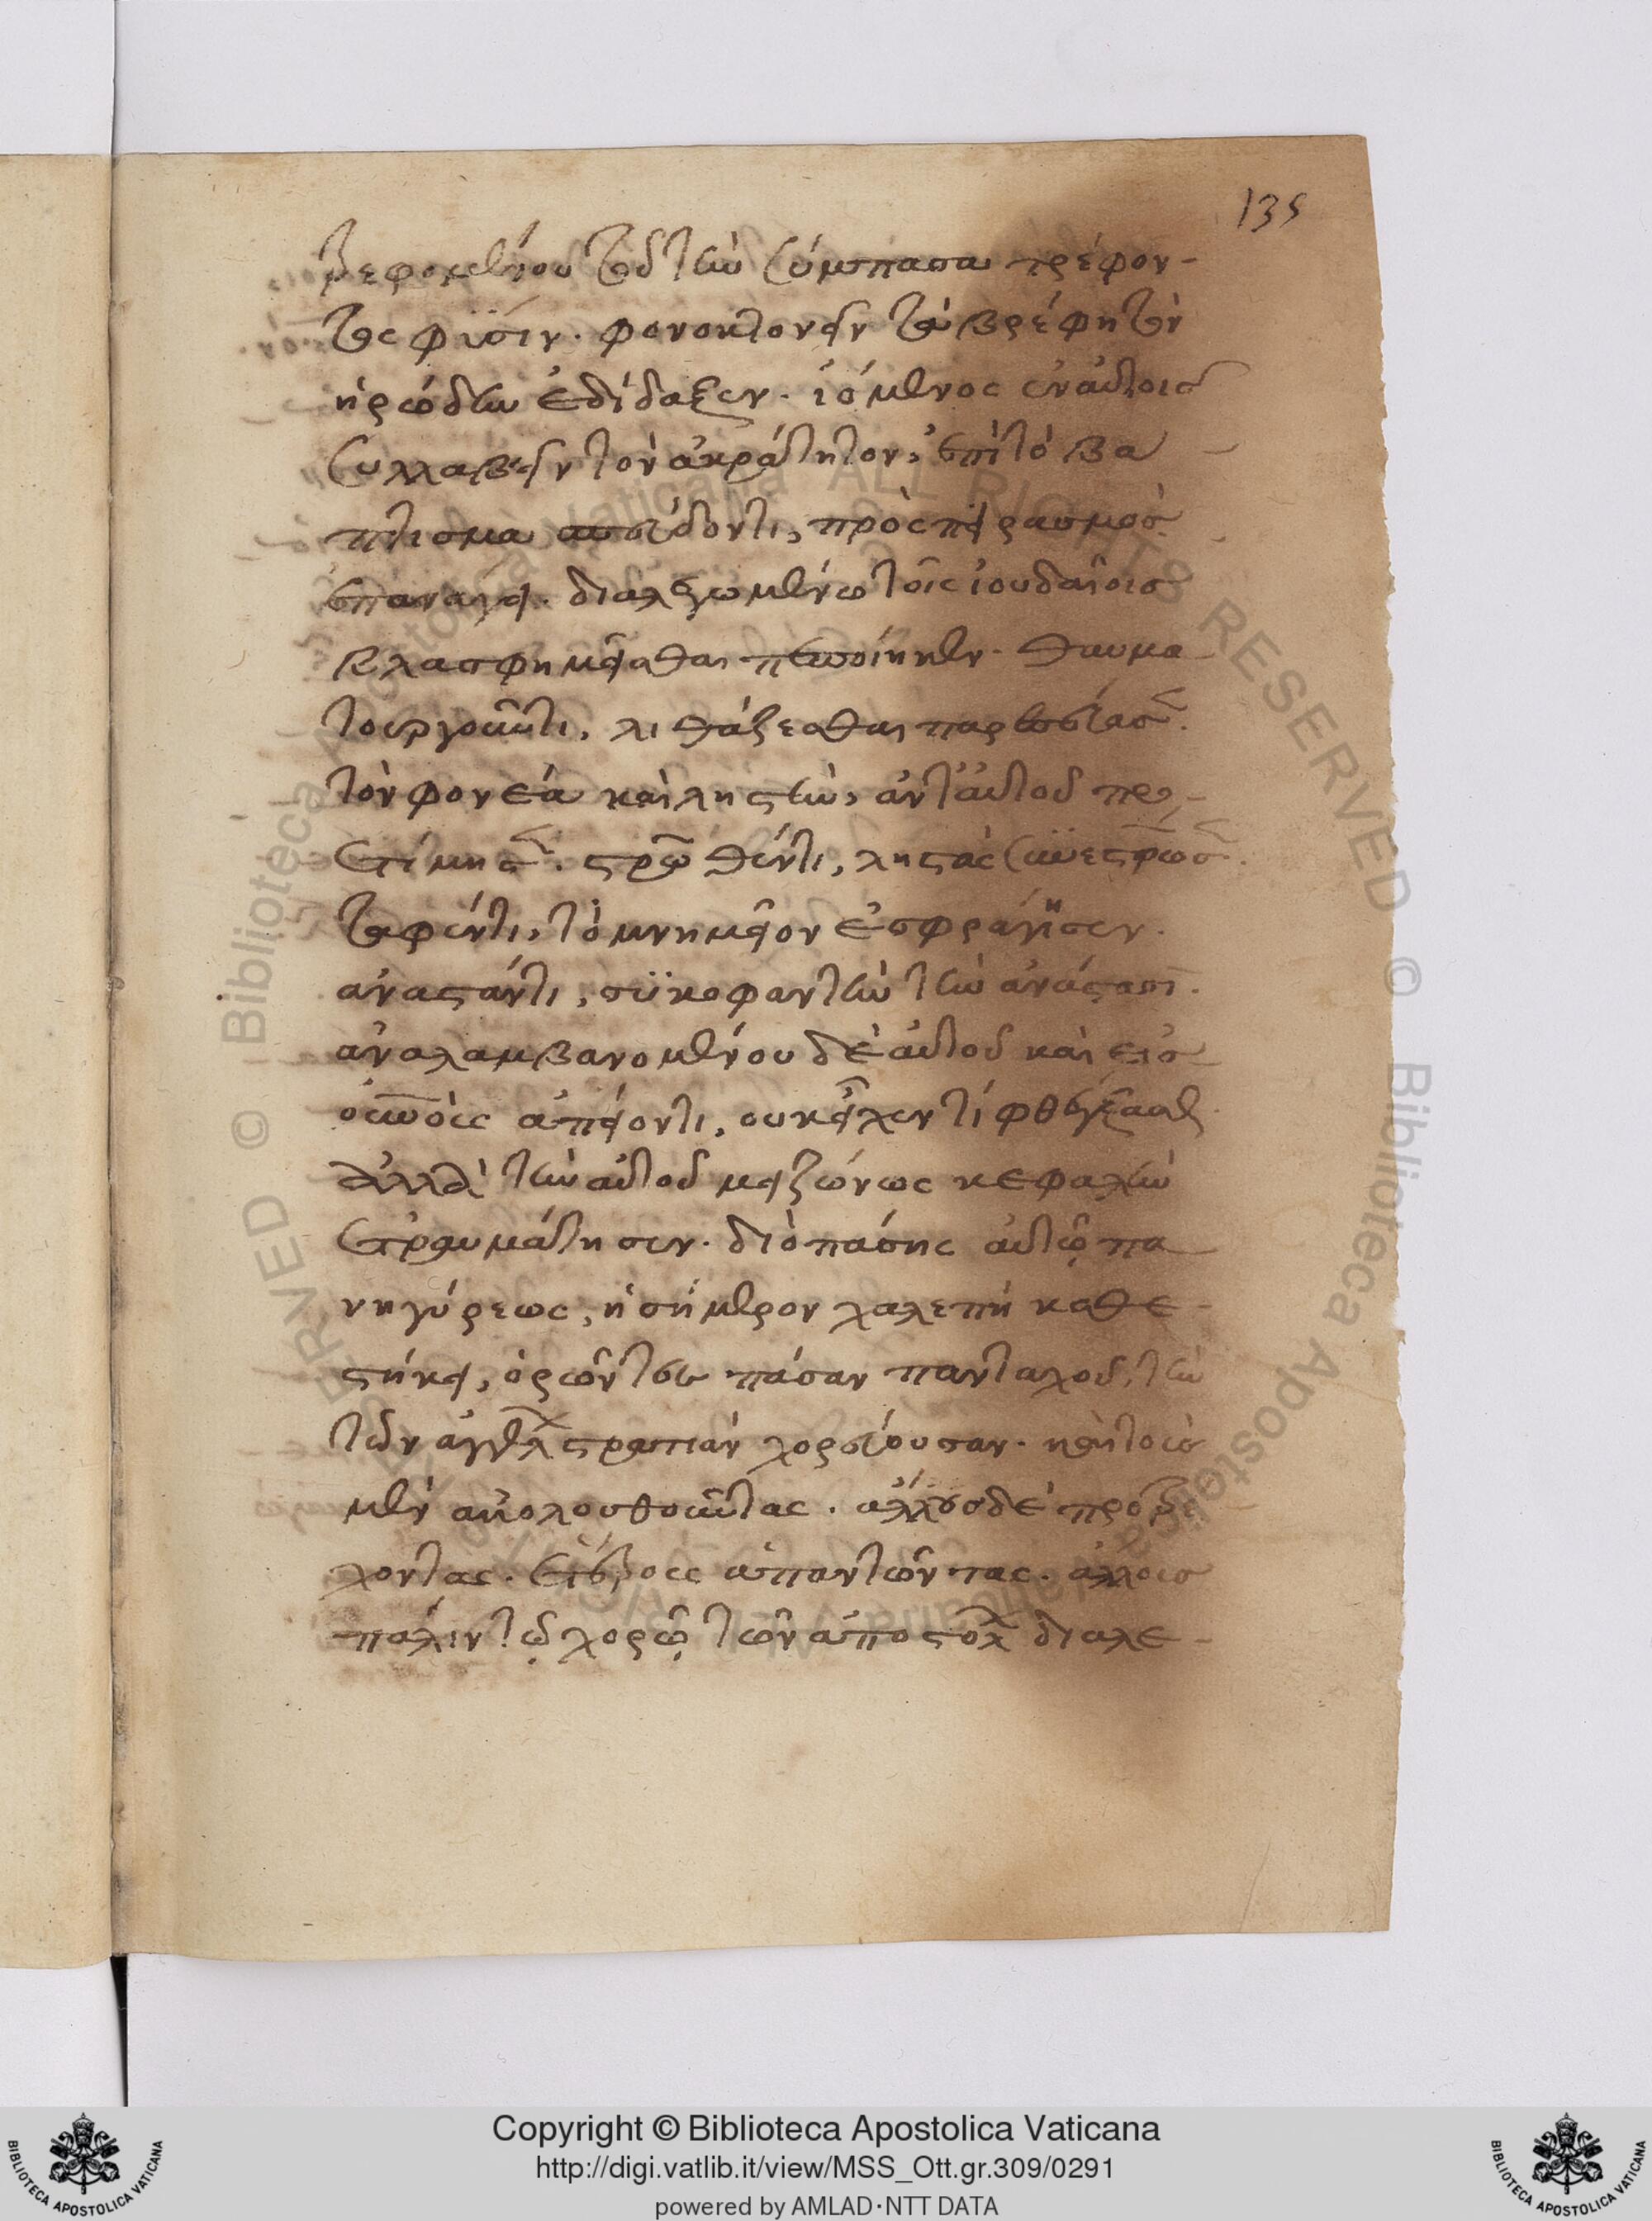 135
τρεφομένου τοῦ τὴν σύμπασαν τρέφον-
τος φύσιν. φονοκτονεῖν τὰ βρέφη τὸν
ἡρώδην ἐδίδαξεν. ἰόμενος ἐν αὐτοῖς
συλλαβεῖν τὸν ἀκράτητον, ἐπὶ τὸ βα
πτισμα σπεύδοντι, πρὸς πειρασμοὺς
ἐπαναγει. διαλεγωμένω τοῖς ἰουδαίοις
βλασφημεῖσθαι πεποίηκεν. θαυμα
τουργοῦντι, λιθάζεσθαι παρεσκεύασεν.
τὸν φονέα καὶ ληστὴν, ἀντ' αὐτοῦ προ-
ετίμησεν. σταυρωθέντι, ληστὰς συνεσταύρωσεν.
ταφέντι, τὸ μνημεῖον ἐσφράγησεν.
ἀναστάντι, συκοφαντεῖν τὴν ἀνάστασιν.
ἀναλαμβανομένου δὲ αὐτοῦ καὶ εἰς
οὐρανοὺς ἀπιόντι, οὐκ εἶχεν τί φθέγξασθαι
ἀλλὰ τὴν αὐτοῦ μειζώνως κεφαλὴν
ἐτραυμάτησεν. διὸ πάσης αὐτῷ πα
νηγύρεως, ἡ σήμερον χαλεπὴ καθε-
στήκει, ὁρῶντες πάσαν πανταχοῦ, τὴν
τῶν ἀγγέλων στρατιὰν χορεύουσαν. καὶ τοὺς
μὲν ἀκολουθοῦντας. ἄλλους δὲ προτρέ
χοντας. ἑτέρους ἀπαντῶντας. ἄλλους
πάλιν τῷ χορῷ τῶν ἀποστόλων διαλε-
Copyright © Biblioteca Apostolica Vaticana
http://digi.vatlib.it/view/MSS_Ott.gr.309/0291
powered by AMLAD·NTT DATA
BIBLIOTECA APOSTOLICA VATICANA
BIBLIOTECA APOSTOLICA VATICANA